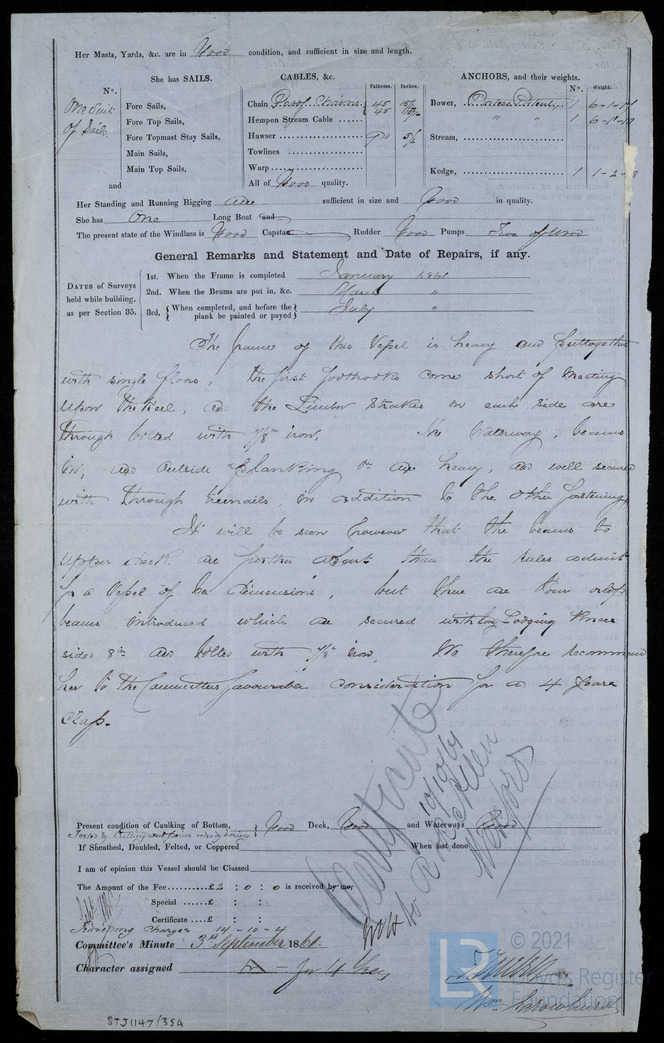 Her Masts, Yards, &c. are in Good condition, and sufficient in size and length.
She has SAILS.
CABLES, &c.
ANCHORS, and their weights.
N°.
Fathoms.
Inches.
N°.
Weight.
One Suit
of Sails
Fore Sails,
Fore Top Sails,
Fore Topmast Stay Sails,
Main Sails,
Main Top Sails,
and
Chain Proof Chains 45
Hempen Stream Cable ...... 45
Hawser 90 5½
Towlines
Warp
All of Good quality.
Bower, 1
" " 1
Stream,
Kedge, 1 1-2-8
Her Standing and Running Rigging are sufficient in size and Good in quality.
She has One Long Boat and
The present state of the Windlass is Good Capstan Rudder Good Pumps Two of Wood
General Remarks and Statement and Date of Repairs, if any.
DATES of Surveys
held while building,
as per Section 35.
1st. When the Frame is completed January 1861
2nd. When the Beams are put in, &c. March "
3rd. {When completed, and before the plank be painted or payed} July "
The frame of this Vessel is heavy and put together
with single floors, the first foothooks come short of meeting
upon the keel, and the Limber Strakes on each side are
through bolted with 7/8 iron. The Waterway, beams
in, and outside planking are heavy, and well secured
with through treenails in addition to the other fastening
It will be seen however that the beams to
upper deck are further apart than the rules admit
for a Vessel of her dimensions, but there are four orlop
beams introduced which are secured with Lodging Knees
sided 8in and bolted with 7/8 iron, We therefore recommend
her to the Committees favourable consideration for a 4 Years
Class.
Certificate
Writ to
Wexford
Present condition of Caulking of Bottom, Good Deck, Good and Waterways Good
If Sheathed, Doubled, Felted, or Coppered When last done
I am of opinion this Vessel should be Classed
The Amount of the Fee £2 : 0 : 0 is received by me,
Special ...... £ : :
Certificate .... £ : :
Travelling Charges 14-10-4
Committee's Minute 3rd September 1861
Character assigned A - for 4 Years
STJ1147/354
LR
© 2021
Lloyd's Register
Foundation